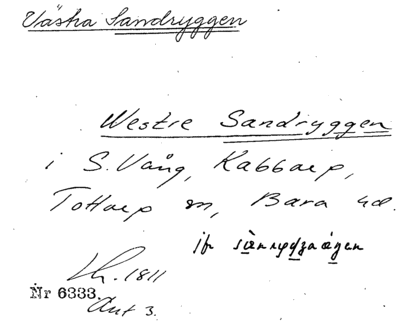 Västra Sandryggen
Westre Sandryggen
i S. Vång, Kabbarp,
Tottarp sn, Bara hd.
jfr
Lh. 1811
Nr 6333.
Akt 3.